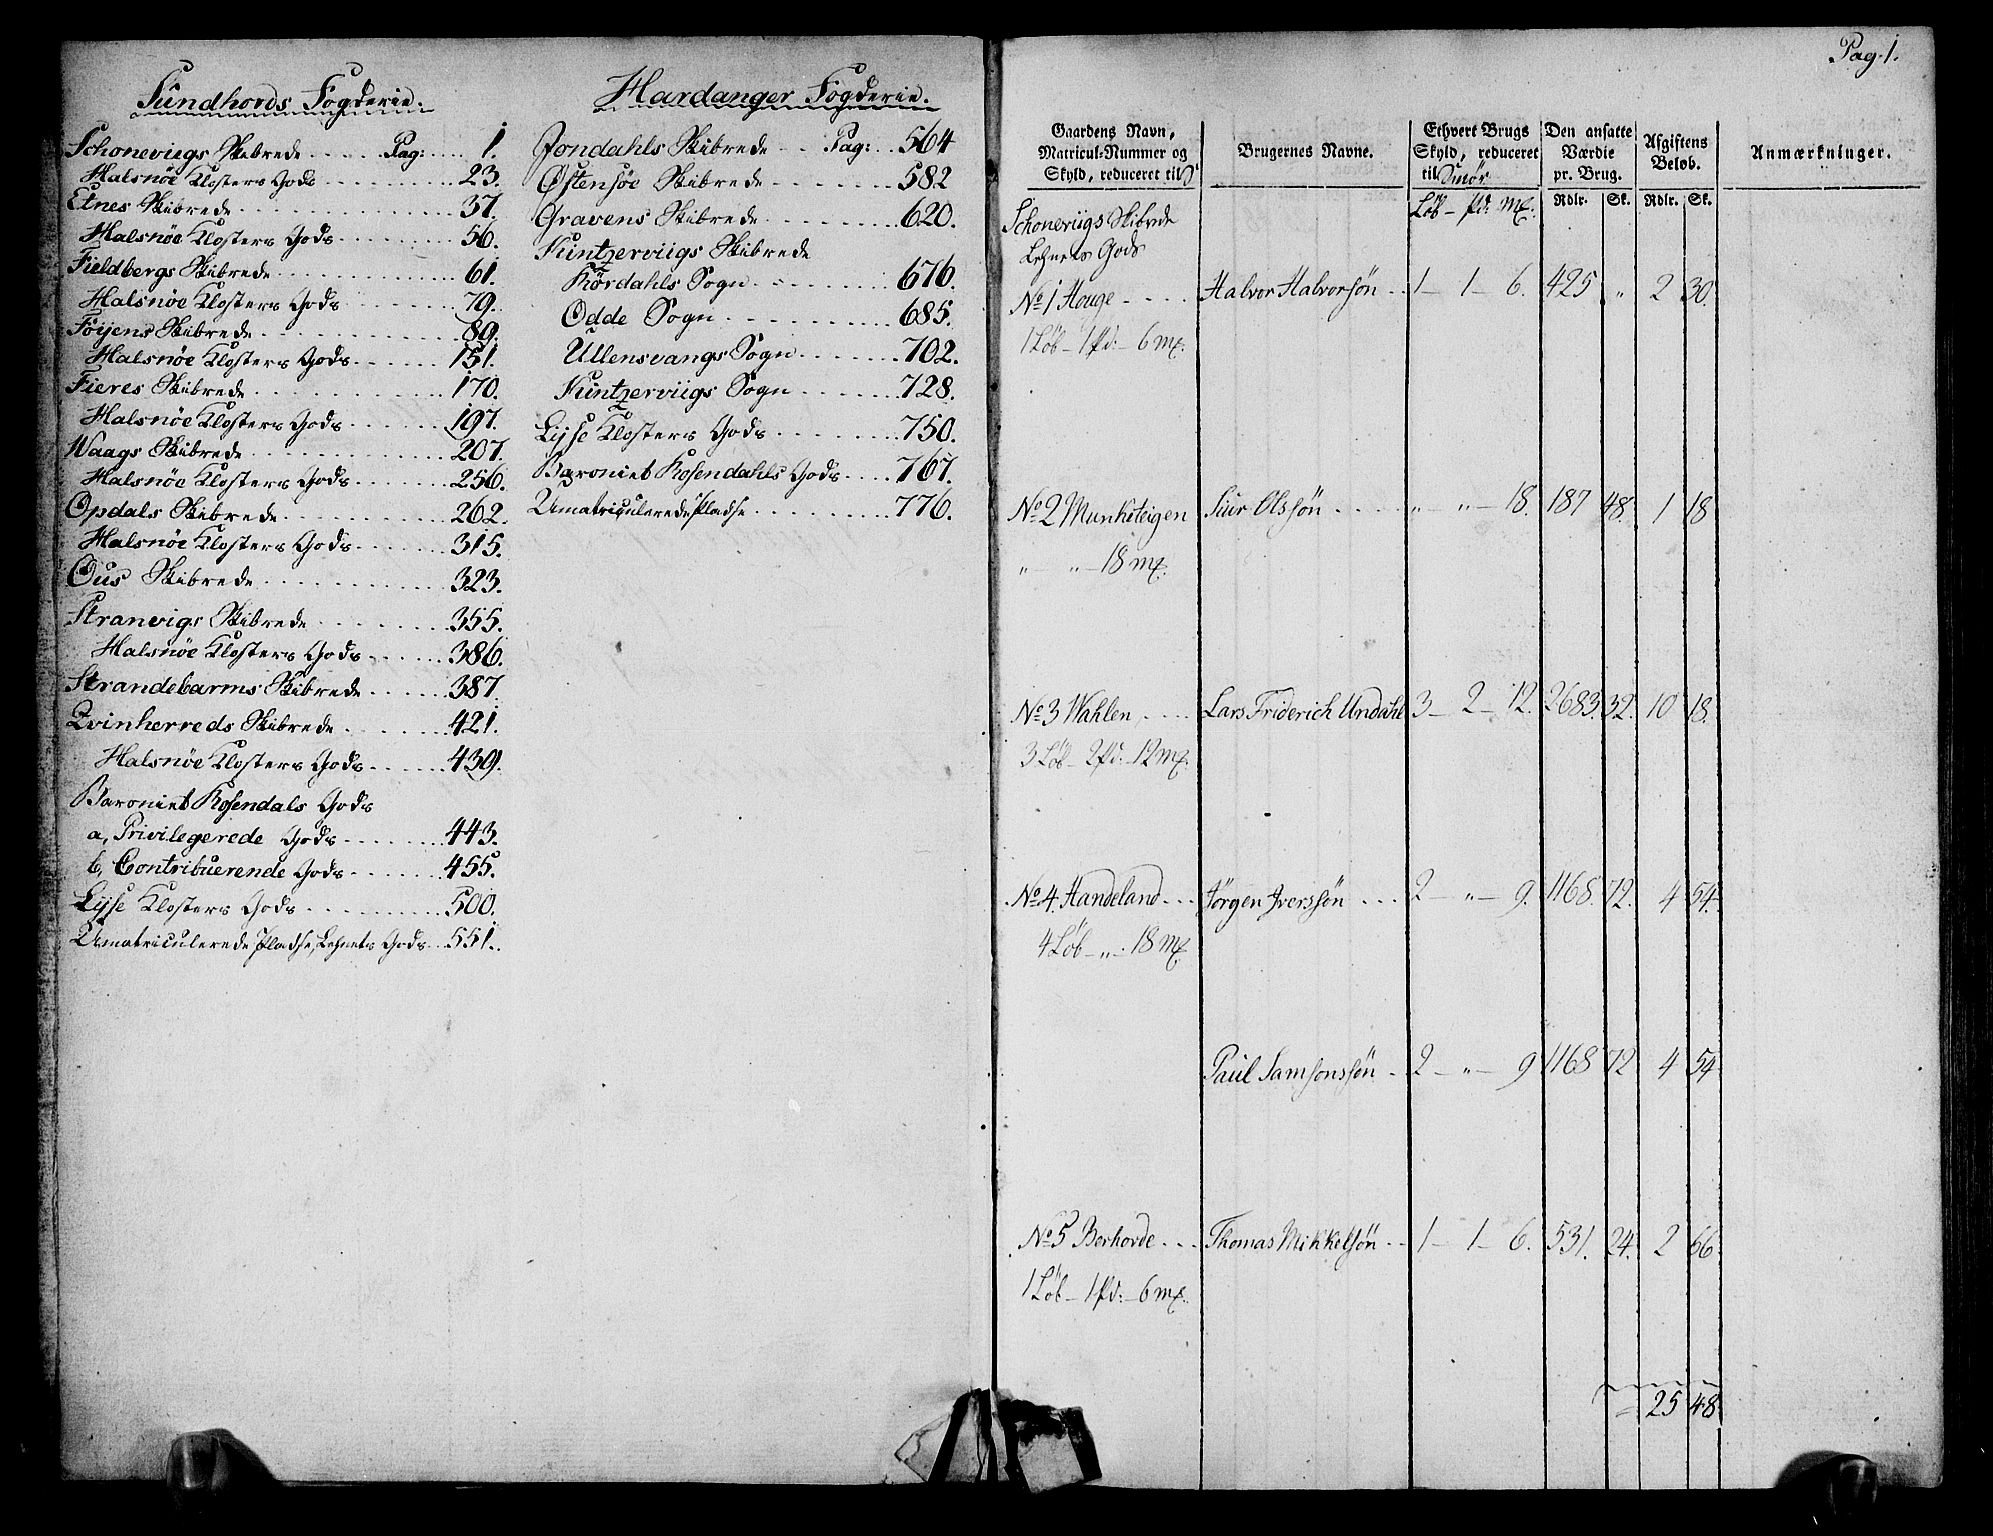 Sundhords Fogderie.
Schoneviigs Skibrede Pag: 1.
Halsnöe Klosters Gods 23.
Etnes Skibrede 37.
Halsnöe Klosters Gods 56.
Fieldbergs Skibrede 61.
Halsnöe Klosters Gods 79.
Föyens Skibrede 89.
Halsnöe Klosters Gods 151.
Fieres Skibrede 170.
Halsnöe Klosters Gods 197.
Waags Skibrede 207.
Halsnöe Klosters Gods 256.
Opdals Skibrede 262.
Halsnöe Klosters Gods 315.
Ous Skibrede 323.
Stranvigs Skibrede 355.
Halsnöe Klosters Gods 386.
Strandebarms Skibrede 387.
Qvinherreds Skibrede 421.
Halsnöe Klosters Gods 439.
Baroniet Rosendals Gods
a, Privilegerede Gods 443.
b, Contribuerende Gods 455.
Lyse Klosters Gods 500.
Umatriculerede Pladse, Lehnets Gods 551.
Hardanger Fogderie.
Jondahls Skibrede Pag: 564
Östensöe Skibrede 582
Gravens Skibrede 620.
Kintzerviigs Skibrede
Rördahls Sogn 676.
Odde Sogn 685.
Ullensvangs Sogn 702.
Kintzerviigs Sogn 728.
Lyse Klosters Gods 750.
Baroniet Rosendahls Gods 767.
Umatriculerede Pladse 776.
Pag. 1.
Gaardens Navn, Matricul-Nummer og Skyld, reduceret til
Brugernes Navne.
Ethvert Brugs Skyld, reduceret til Smör
Den ansatte Værdie pr. Brug.
Afgiftens Beløb.
Anmærkninger.
Löb – Pd: Mk:
Rdlr. Sk. Rdlr. Sk.
Schoneviigs Skibrede
Lehnets Gods
No 1 Houge Halvor Halvorsön 1 – 1 – 6. 425 „ 2 30.
1 Löb – 1 Pd: – 6 mk.
No 2 Munketeigen Siur Olssön „ „ – 18. 187 48. 1 18
„ – „ – 18 mk.
No 3 Wahlen Lars Friderich Undahl 3 – 2 – 12. 2683. 32. 10 18.
3 Löb – 2 Pd: – 12 mk.
No 4. Handeland Jörgen Iverssön 2 – „ – 9. 1168. 72. 4 54.
4 Löb – „ – 18 mk
Paul Samsonssön 2 – „ – 9 1168 72 4 54
No 5 Berhovde Thomas Mikkelsön 1 – 1 – 6. 531. 24. 2 66
1 Löb – 1 Pd: – 6 mk.
25 48